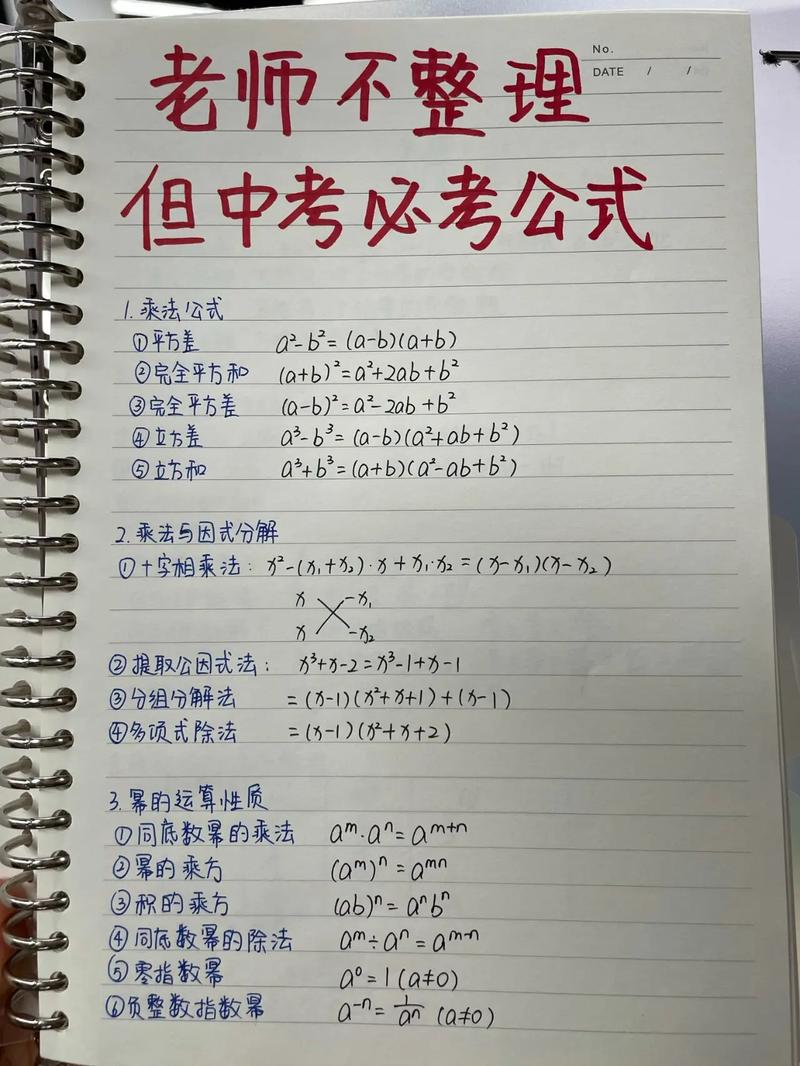 No.
DATE / /
老师不整理
但中考必考公式
1.乘法公式
①平方差 a²-b²=(a-b)(a+b)
②完全平方和 (a+b)²=a²+2ab+b²
③完全平方差 (a-b)²=a²-2ab+b²
④立方差 a³-b³=(a-b)(a²+ab+b²)
⑤立方和 a³+b³=(a+b)(a²-ab+b²)
2.乘法与因式分解
①十字相乘法: x²-(x₁+x₂)·x+x₁·x₂=(x-x₁)(x-x₂)
x -x₁
x -x₂
②提取公因式法: x³+x-2=x³-1+x-1
③分组分解法 =(x-1)(x²+x+1)+(x-1)
④多项式除法 =(x-1)(x²+x+2)
3.幂的运算性质
①同底数幂的乘法 aᵐ·aⁿ=aᵐ⁺ⁿ
②幂的乘方 (aᵐ)ⁿ=aᵐⁿ
③积的乘方 (ab)ⁿ=aⁿbⁿ
④同底数幂的除法 aᵐ÷aⁿ=aᵐ⁻ⁿ
⑤零指数幂 a⁰=1(a≠0)
⑥负整数指数幂 a⁻ⁿ=1/aⁿ (a≠0)